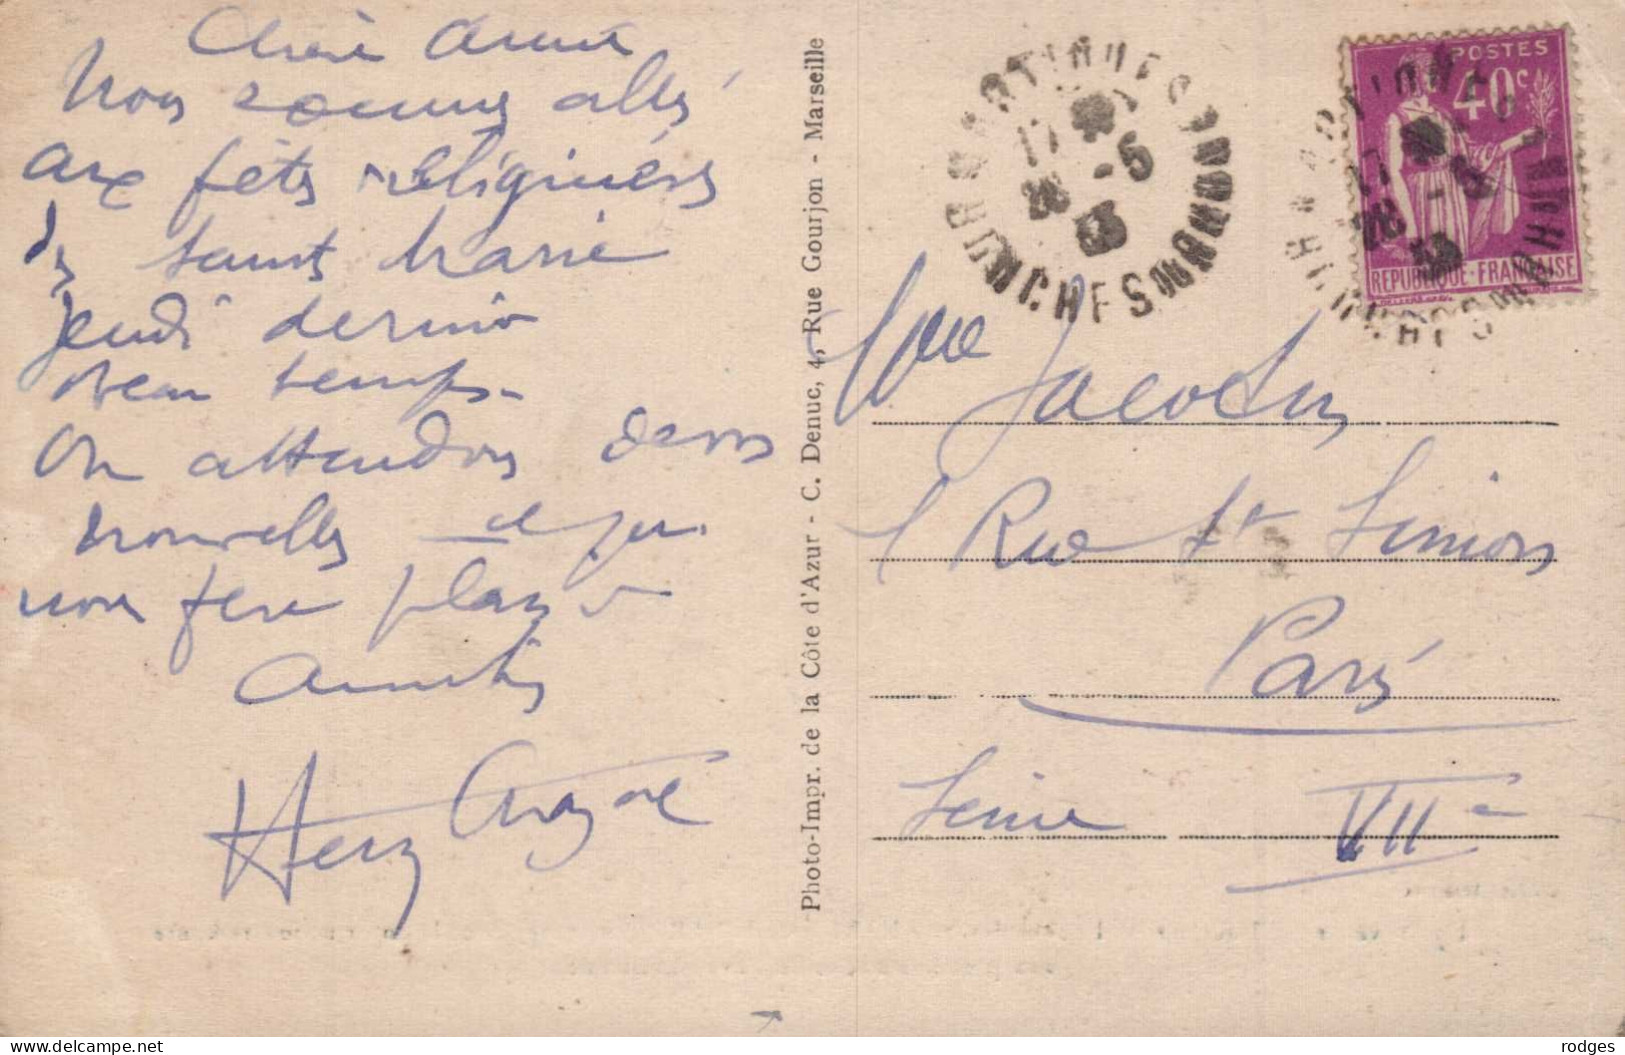 Chère Amie
Nous sommes allés
aux fêtes religieuses
des Saintes Marie
jeudi dernier
beau temps.
On attendons deros
nouvelles
nous fera plaisir
Amitiés
Photo-Impr. de la Côte d'Azur - C. Denuc, 4, Rue Gourjon - Marseille
MARTIGUES
17 -5
28
BOUCHES DU RHONE
POSTES
40c
REPUBLIQUE FRANÇAISE
Mme Jacobus
1 Rue St Simon
Paris
Seine VIIe
rodges
delcampe.net